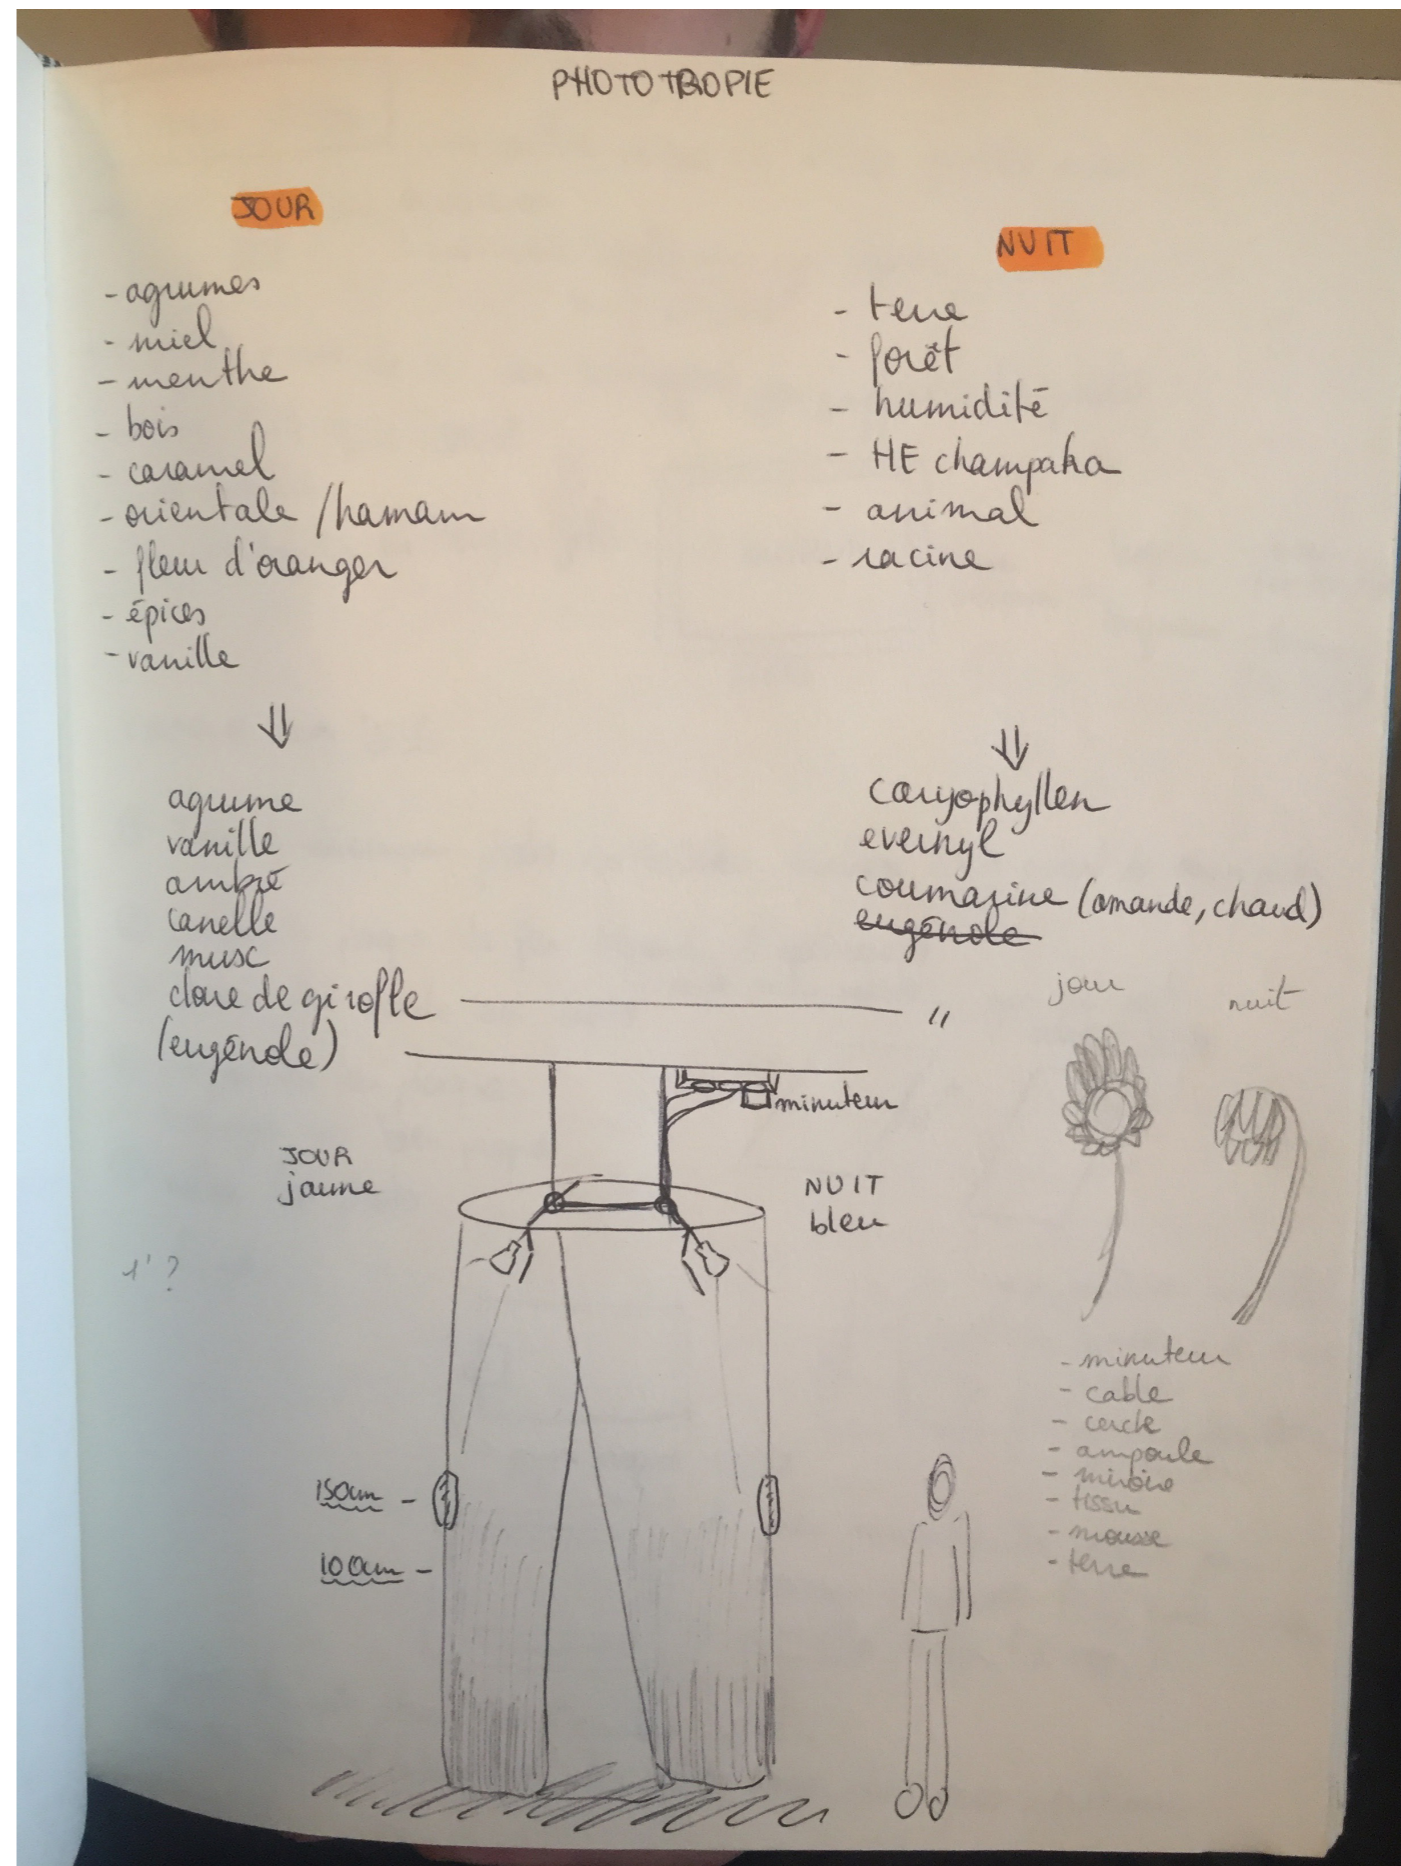 PHOTOTROPIE
JOUR
- agrumes
- miel
- menthe
- bois
- caramel
- orientale / hamam
- fleur d'oranger
- épices
- vanille
⇓
agrume
vanille
ambré
canelle
musc
cloue de girofle
(eugénole)
NUIT
- terre
- forêt
- humidité
- HE champaka
- animal
- racine
⇓
caryophyllen
evernyl
coumarine (amande, chaud)
eugénole
"
minuteur
JOUR
jaune
NUIT
bleu
1' ?
150cm -
100cm -
jour
nuit
- minuteur
- cable
- cercle
- ampoule
- miroire
- tissu
- mousse
- terre